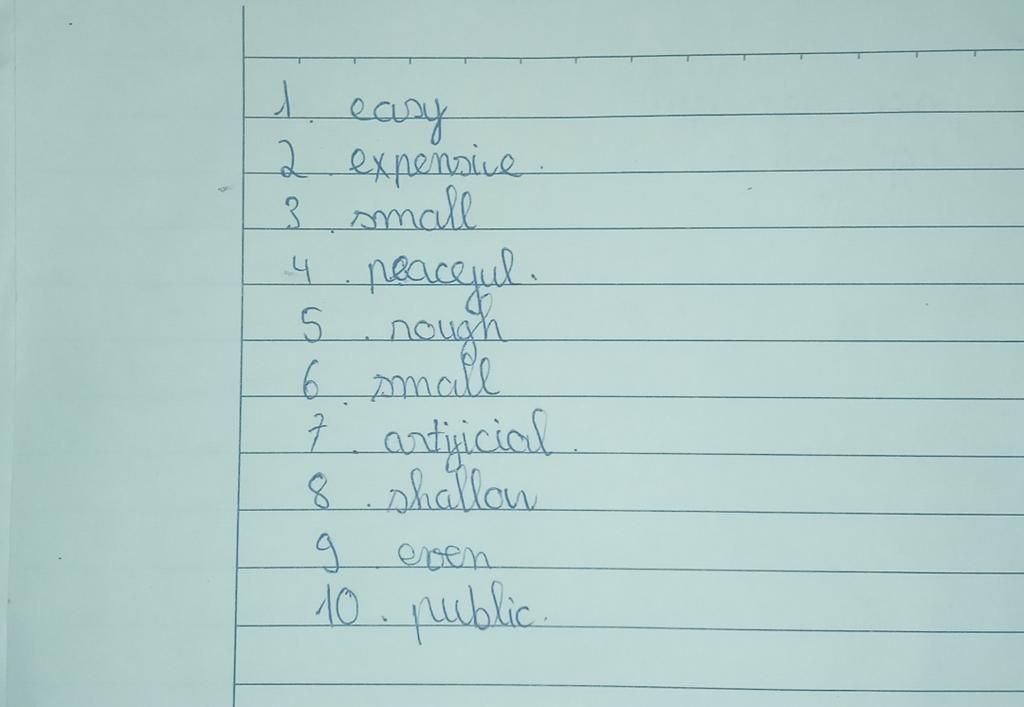 1. easy
2 expensive.
3. small
4. peaceful.
5. rough
6. small
7. artificial.
8. shallow
9 even
10. public.